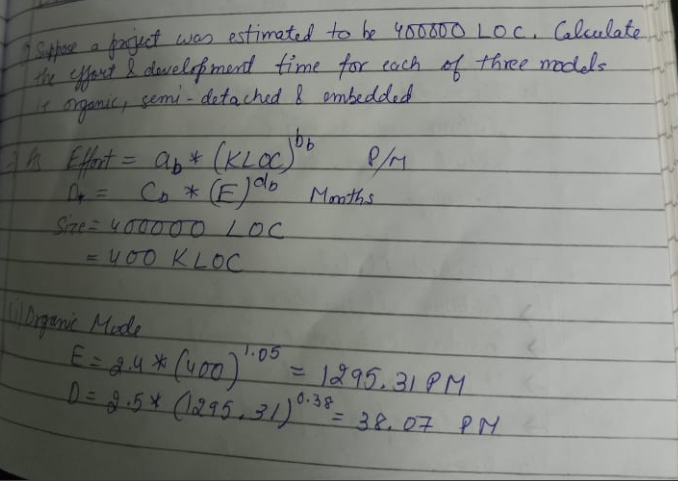 Q Suppose a project was estimated to be 400000 LOC. Calculate
the effort & development time for each of three models
ie organic, semi-detached & embedded
Effort = ab * (KLOC)^bb P/M
D = Cb * (E)^db Months
Size = 400000 LOC
= 400 KLOC
(i) Organic Mode
E = 2.4 * (400)^1.05 = 1295.31 PM
D = 2.5 * (1295.31)^0.38 = 38.07 PM